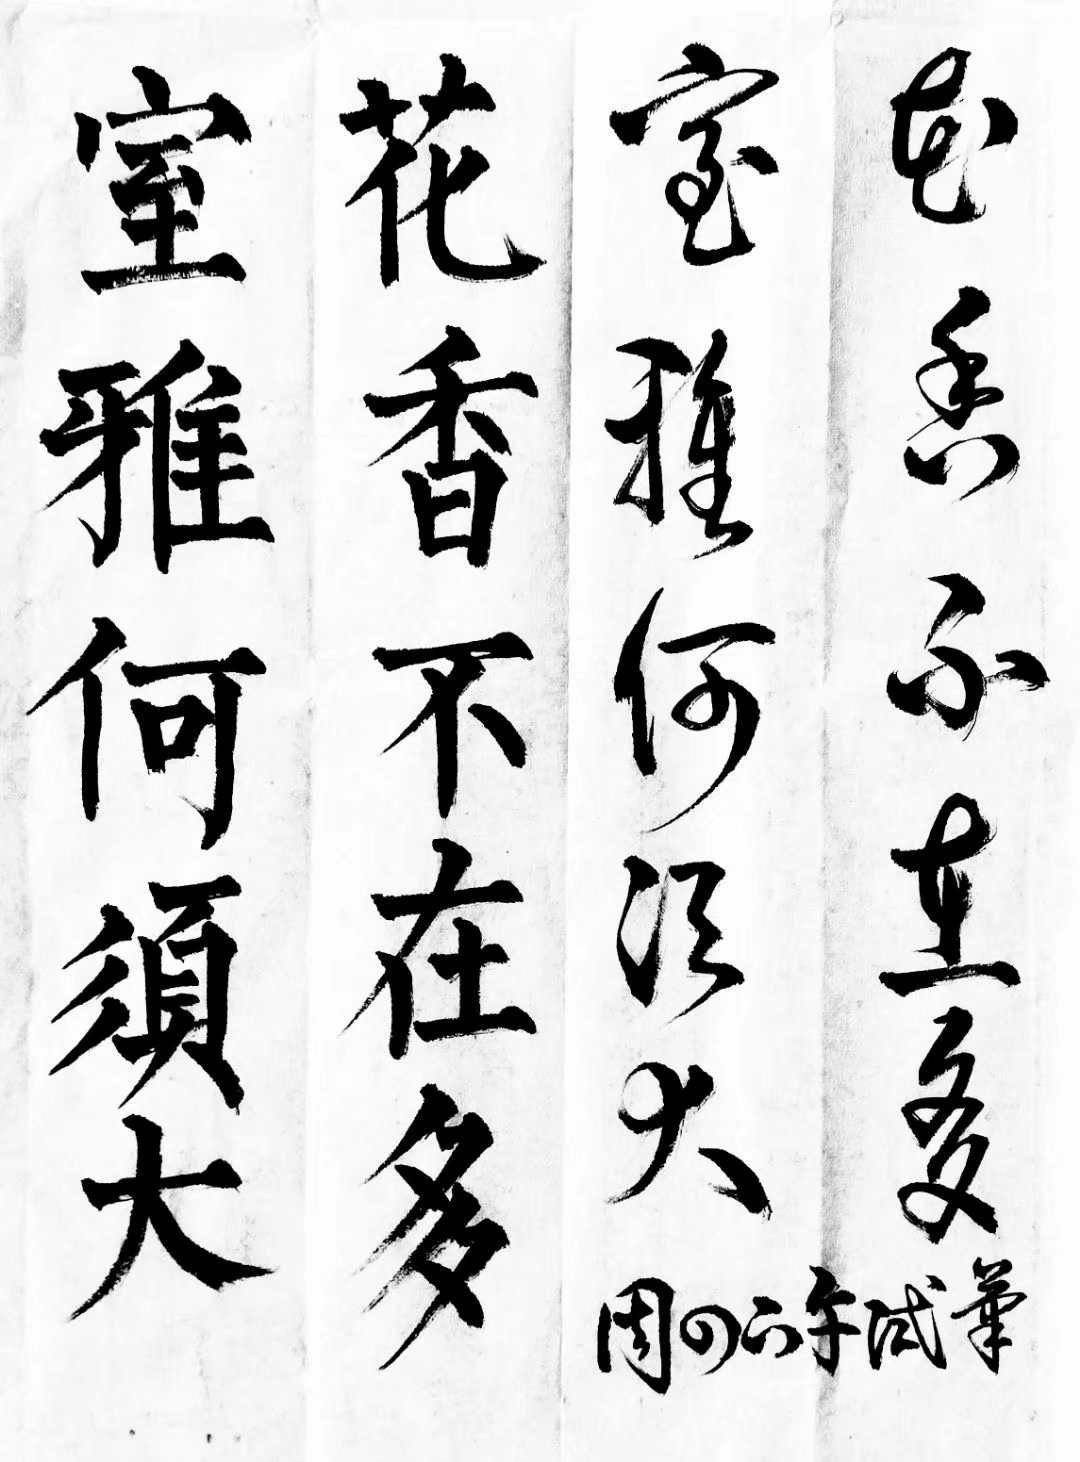 花香不在多
室雅何須大
花香不在多
室雅何須大
周四下午試筆